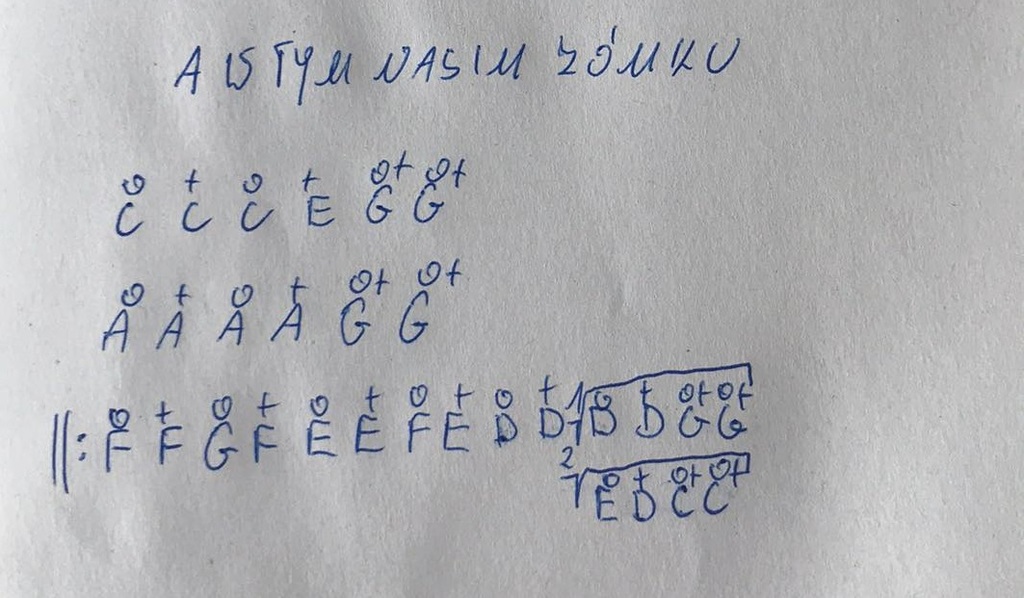 A W TYM NASIM ZÓMKU
o + o + o+ o+
C C C E G G
o + o + o+ o+
A A A A G G
o + o + o + o + o + 1 o + o+ o+
||: F F G F E E F E D D D D G G
2 o + o+ o+
E D C C